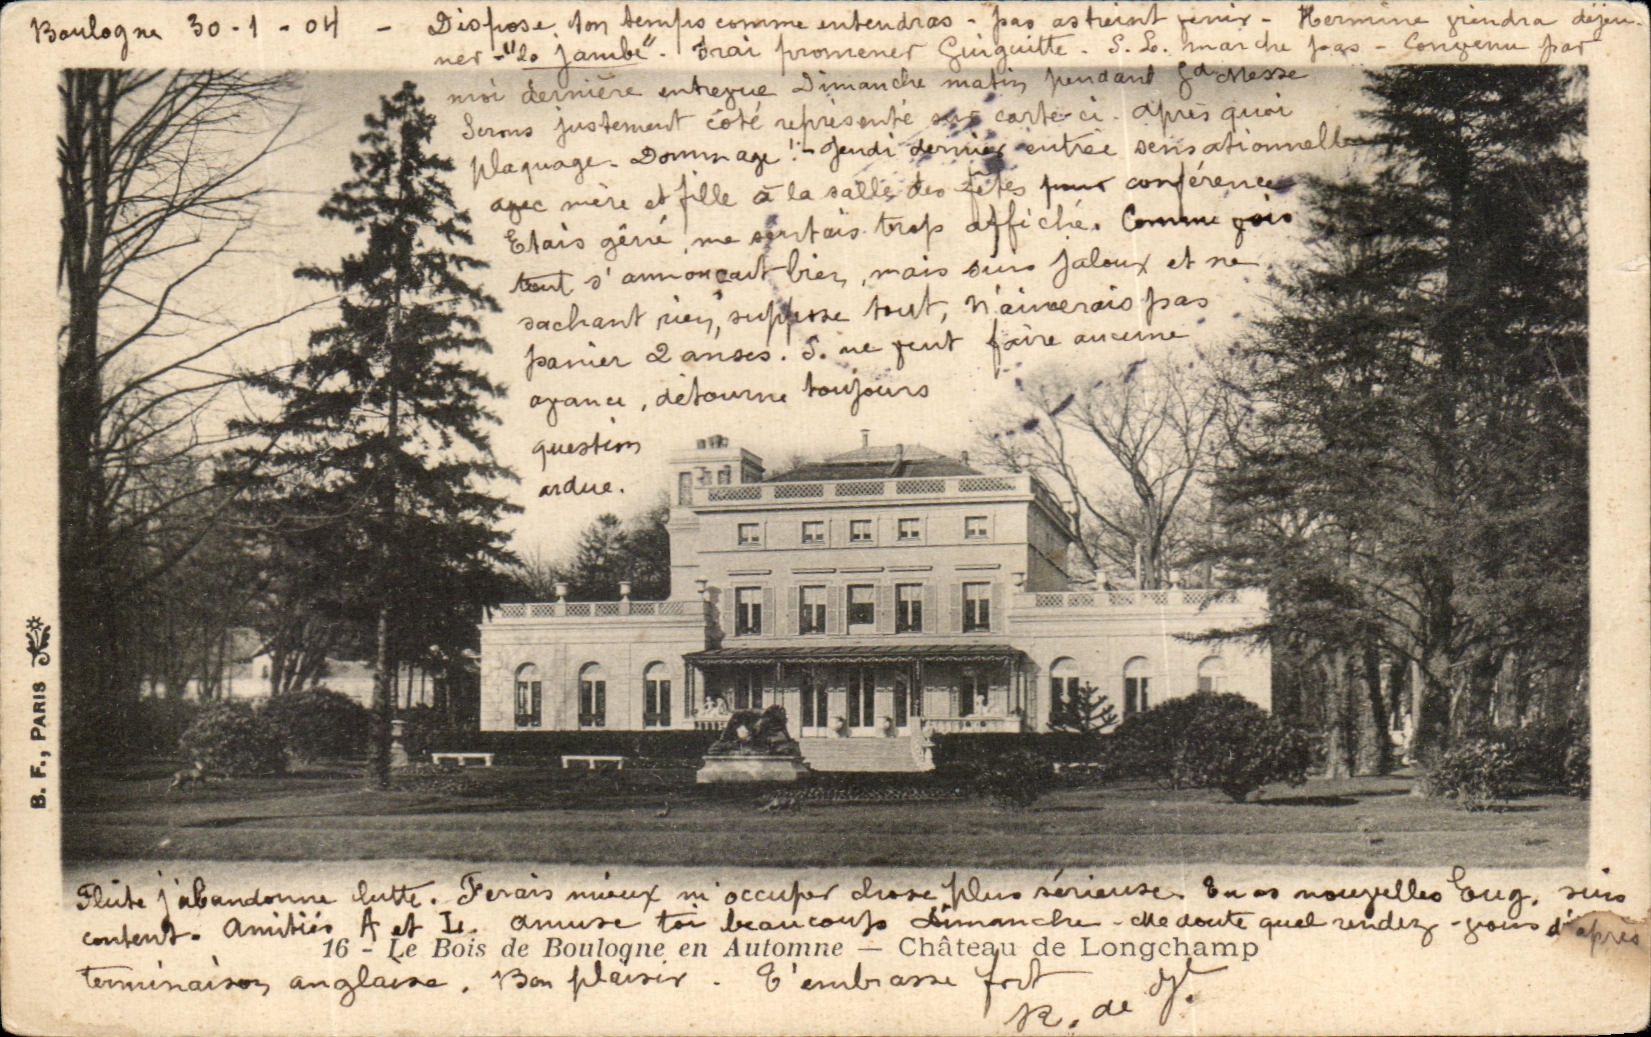 Boulogne 30-1-04 - Dispose ton temps comme entendras - pas astreint venir - Hermine viendra déjeu-
ner - "la jambe". Irai promener Guiguitte. S. L. marche pas - Convenu par
moi dernière entrevue Dimanche matin pendant Gd Messe
Serons justement côté représenté sur carte-ci. Après quoi
plaquage. Dommage! - Jeudi dernier entrée sensationnelle
avec mère et fille à la salle des fêtes pour conférence
Etais gêné, me sentais trop affiché. Comme vois
tout s'annonçait bien, mais suis jaloux et ne
sachant rien, suppose tout, N'aimerais pas
panier 2 anses. S. ne veut faire aucune
avance, détourne toujours
question
ardue.
B. F., PARIS
Flûte j'abandonne lutte. Ferais mieux m'occuper chose plus sérieuse. En as nouvelles Eug. suis
content. Amitiés A et L. Amuse toi beaucoup Dimanche - Me doute quel rendez-vous d'après
16 - Le Bois de Boulogne en Automne — Château de Longchamp
terminaison anglaise. Bon plaisir. T'embrasse fort
R. de